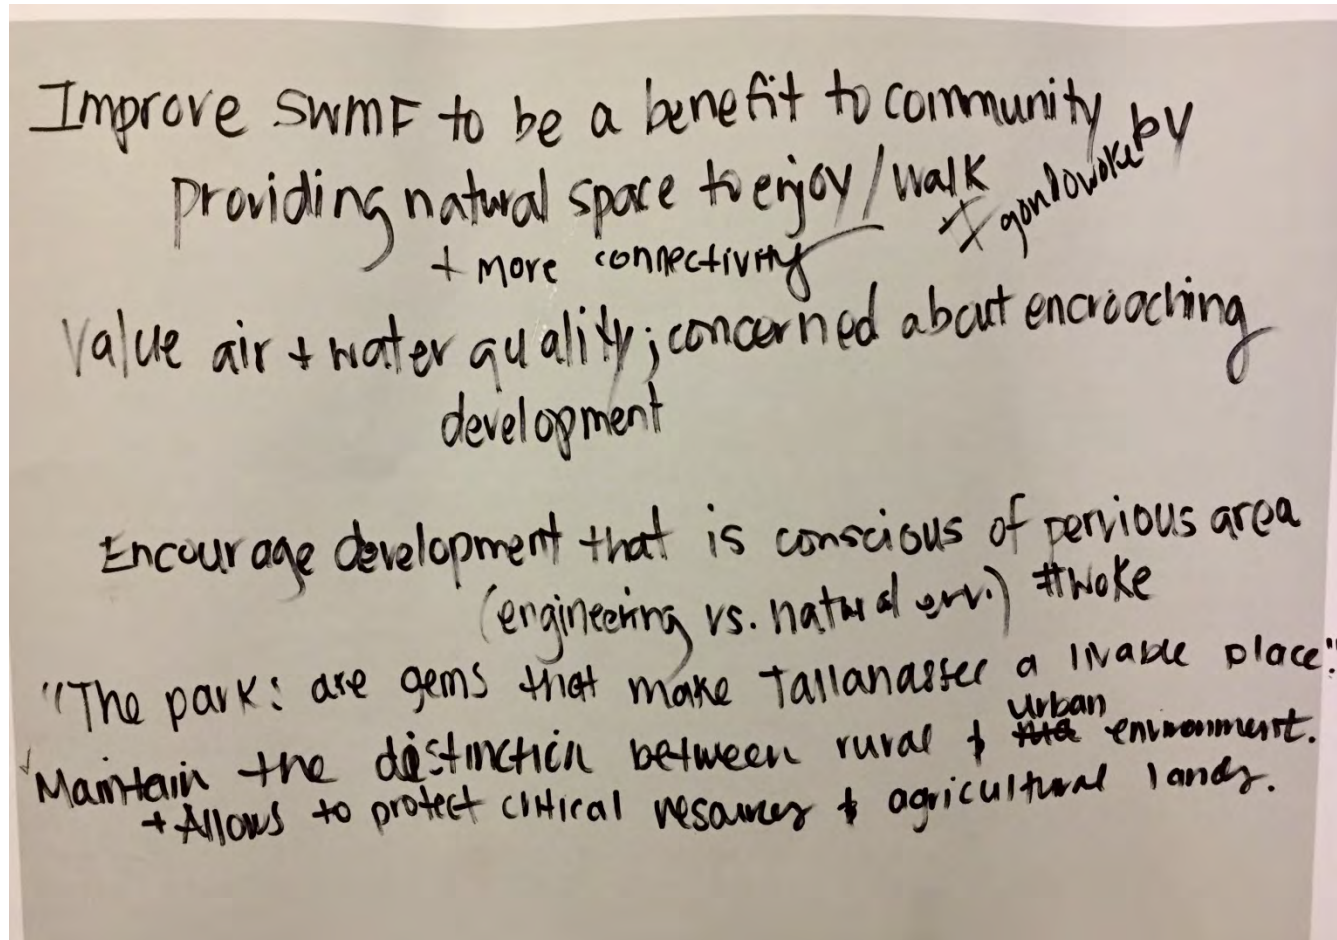 Improve SWMF to be a benefit to community by
providing natural space to enjoy/walk
#gondowoke
+ more connectivity
Value air + water quality; concerned about encroaching
development
Encourage development that is conscious of pervious area
(engineering vs. natural env.) #woke
"The park: are gems that make Tallanassee a livable place."
Maintain the distinction between rural & urban environment.
+ Allows to protect critical resources & agricultural lands.